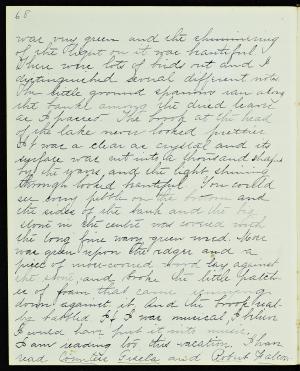 68
was very green and the shimmering
of the light on it was beautiful
There were lots of birds out and I
distinguished several different notes
The little ground sparrows ran along
the banks among the dried leaves
as I passed. The brook at the head
of the lake never looked prettier
It was a clear as crystal and its
surface was cut into a thousand shapes
by the waves, and the light shining
through looked beautiful. You could
see every pebble on the bottom and
the sides of the bank and the big
stone in the centre was covered with
the long fine wavy green weed. There
was green upon the edges and a
piece of moss-covered wood lay against
the stone, and broke the little patch-
es of foam that came
down against it. And the brook real-
ly babbled. If I was musical, I believe
I would have put it into music.
I am reading too this vacation. I have
read Countess Gisela and Robert Falcon-